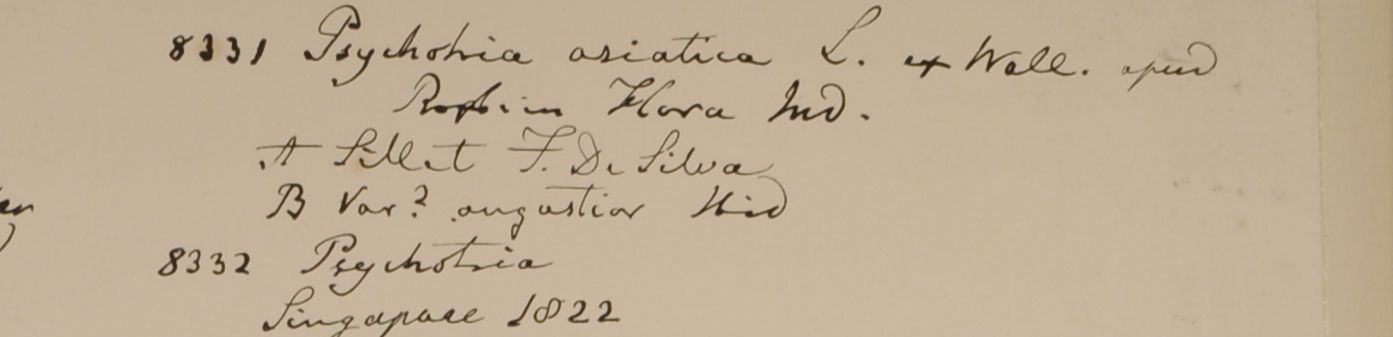 8331 Psychotria asiatica L. ex Wall. apud
Roxb: in Flora Ind.
A Sillet F. De Silva
B Var? angustior Ibid
8332 Psychotria
Singapore 1822